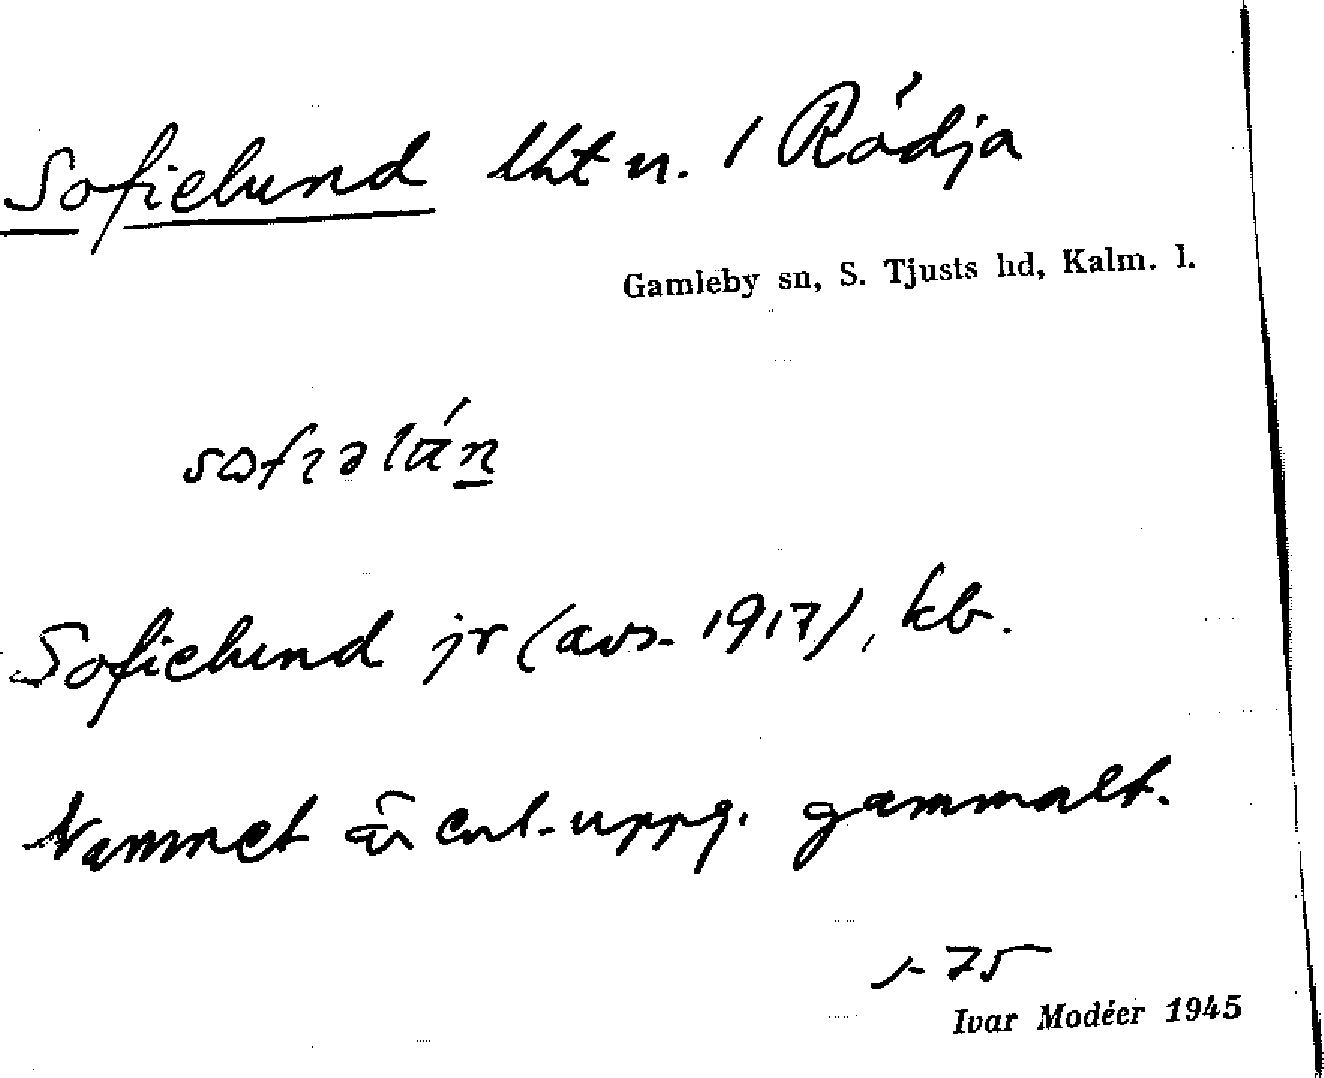 Sofielund lht u. / Rödja
Gamleby sn, S. Tjusts hd, Kalm. l.
Sofielund jr (avs. 1917), kb.
Namnet är enl. uppg. gammalt.
75
Ivar Modéer 1945